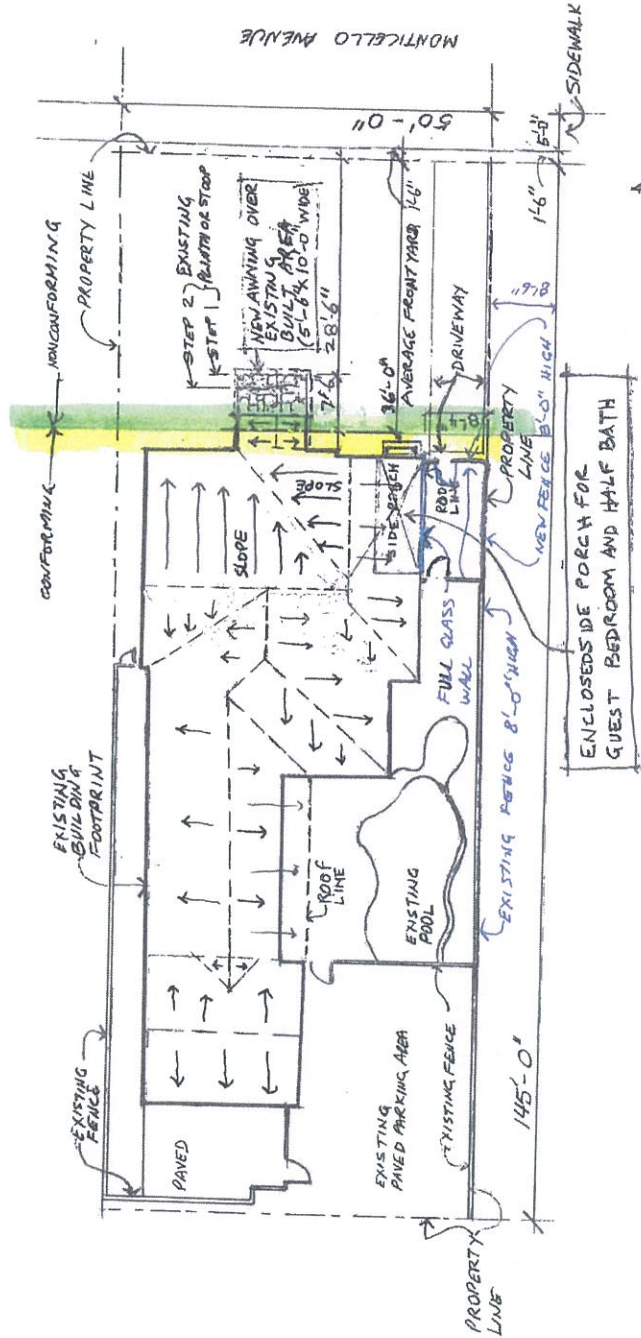 MONTICELLO AVENUE
SIDEWALK
50'-0"
5'-0"
1'-6"
PROPERTY LINE
NONCONFORMING
CONFORMING
STEP 2
STEP 1
EXISTING
PLINTH OR STOOP
NEW AWNING OVER
EXISTING
BUILT AREA
(5'-6" X 10'-0" WIDE)
28'-6"
7'-6"
36'-0"
AVERAGE FRONT YARD
1'-6"
DRIVEWAY
8'-6"
PROPERTY
LINE
NEW FENCE 8'-0" HIGH
SLOPE
SLOPE
SIDE PORCH
ROOF
LINE
FULL GLASS
WALL
ENCLOSED SIDE PORCH FOR
GUEST BEDROOM AND HALF BATH
EXISTING
BUILDING
FOOTPRINT
ROOF
LINE
EXISTING
POOL
EXISTING FENCE 8'-0" HIGH
EXISTING
FENCE
PAVED
EXISTING
PAVED PARKING AREA
EXISTING FENCE
145'-0"
PROPERTY
LINE